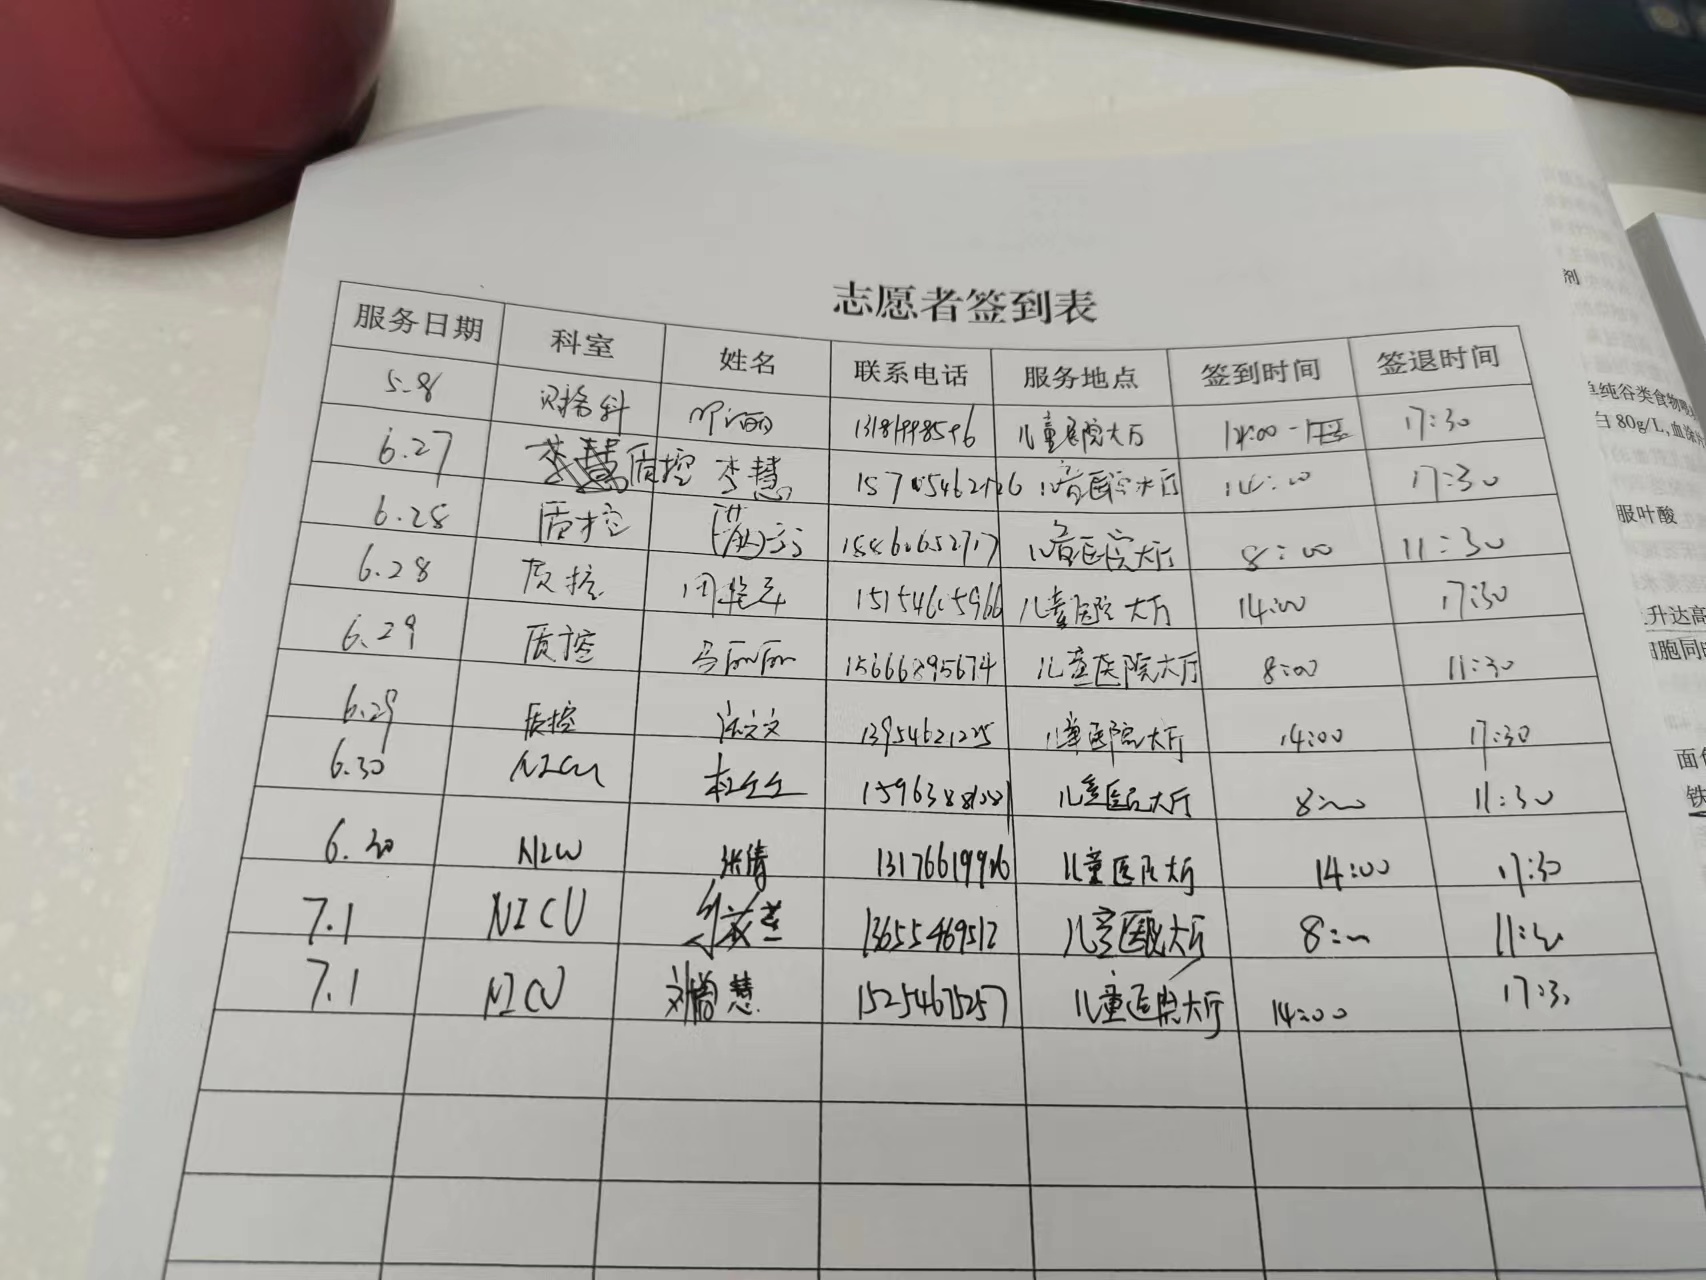 志愿者签到表
服务日期 科室 姓名 联系电话 服务地点 签到时间 签退时间
5.8 财务科 儿童医院大厅 17:30
6.27 质控 李慧 儿童医院大厅 14:00 17:30
6.28 质控 儿童医院大厅 8:00 11:30
6.28 质控 15154605966 儿童医院大厅 14:00 17:30
6.29 质控 马丽丽 15666895674 儿童医院大厅 8:00 11:30
6.29 质控 13954621225 儿童医院大厅 14:00 17:30
6.30 NICU 儿童医院大厅 8:00 11:30
6.30 NICU 张倩 儿童医院大厅 14:00 17:30
7.1 NICU 13655469512 儿童医院大厅 8:00 11:30
7.1 NICU 刘曾慧 15254675257 儿童医院大厅 14:00 17:30
剂
单纯谷类食物喂
白 80g/L,血涂
服叶酸
升达高
细胞同
面
铁